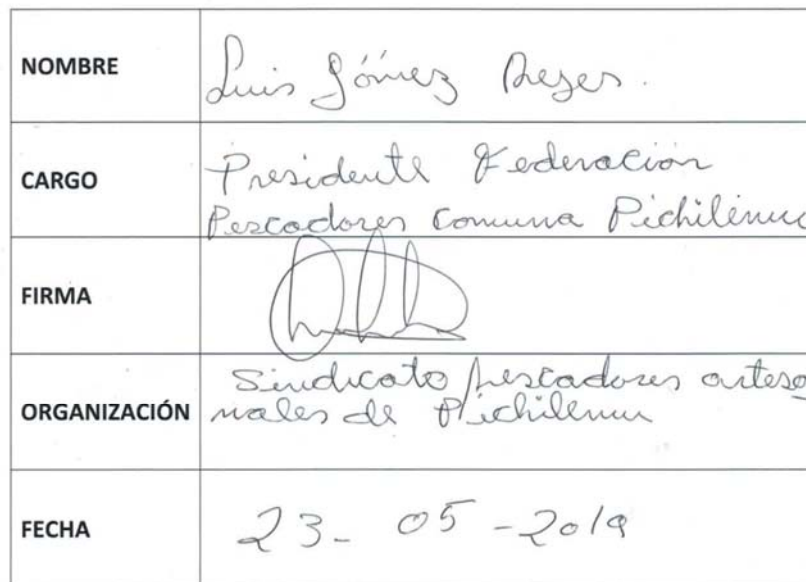 NOMBRE
Luis Gómez Reyes.
CARGO
Presidente Federación
Pescadores comuna Pichilemu
FIRMA
ORGANIZACIÓN
Sindicato pescadores artesa
nales de Pichilemu
FECHA
23- 05 -2019